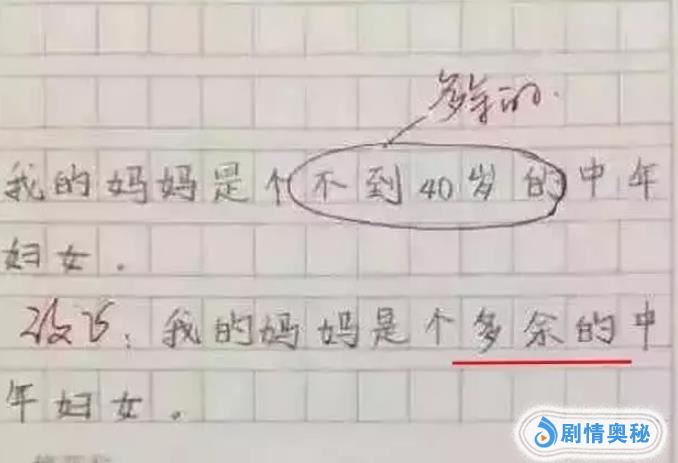 多余的.
我的妈妈是个不到40岁的中年
妇女.
改巧:我的妈妈是个多余的中
年妇女。
剧情奥秘